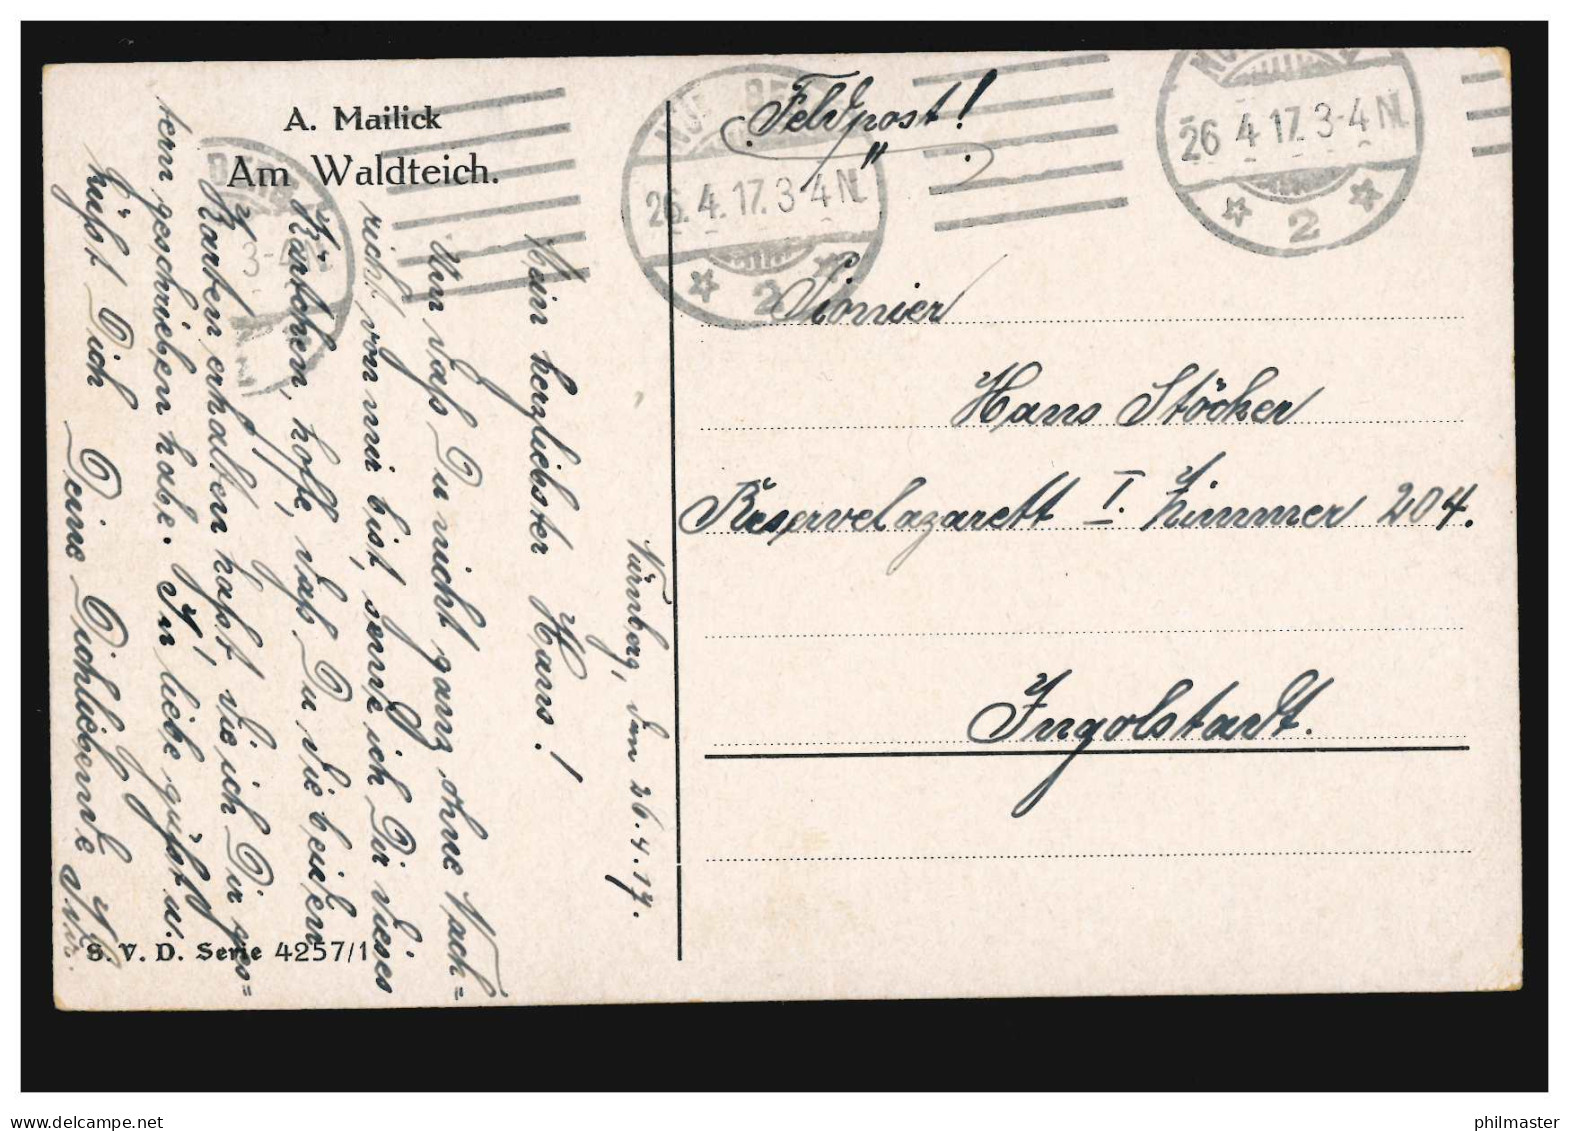 A. Mailick
Am Waldteich.
Nürnberg, den 26.4.17.
Mein herzliebster Hans!
Um daß Du nicht ganz ohne Nach=
richt von mir bist, sende ich Dir dieses
Kärtchen, hoffe, daß Du die beiden
Karten erhalten hast, die ich Dir ges=
tern geschrieben habe. In Liebe grüßt u.
küßt Dich Deine Dichliebende
S. V. D. Serie 4257/1
Feldpost!
NÜRNBERG
26.4.17.3-4 N.
2
26.4.17.3-4 N.
2
Pionier
Hans Stöcker
Reservelazarett I. Zimmer 204.
Ingolstadt.
philmaster